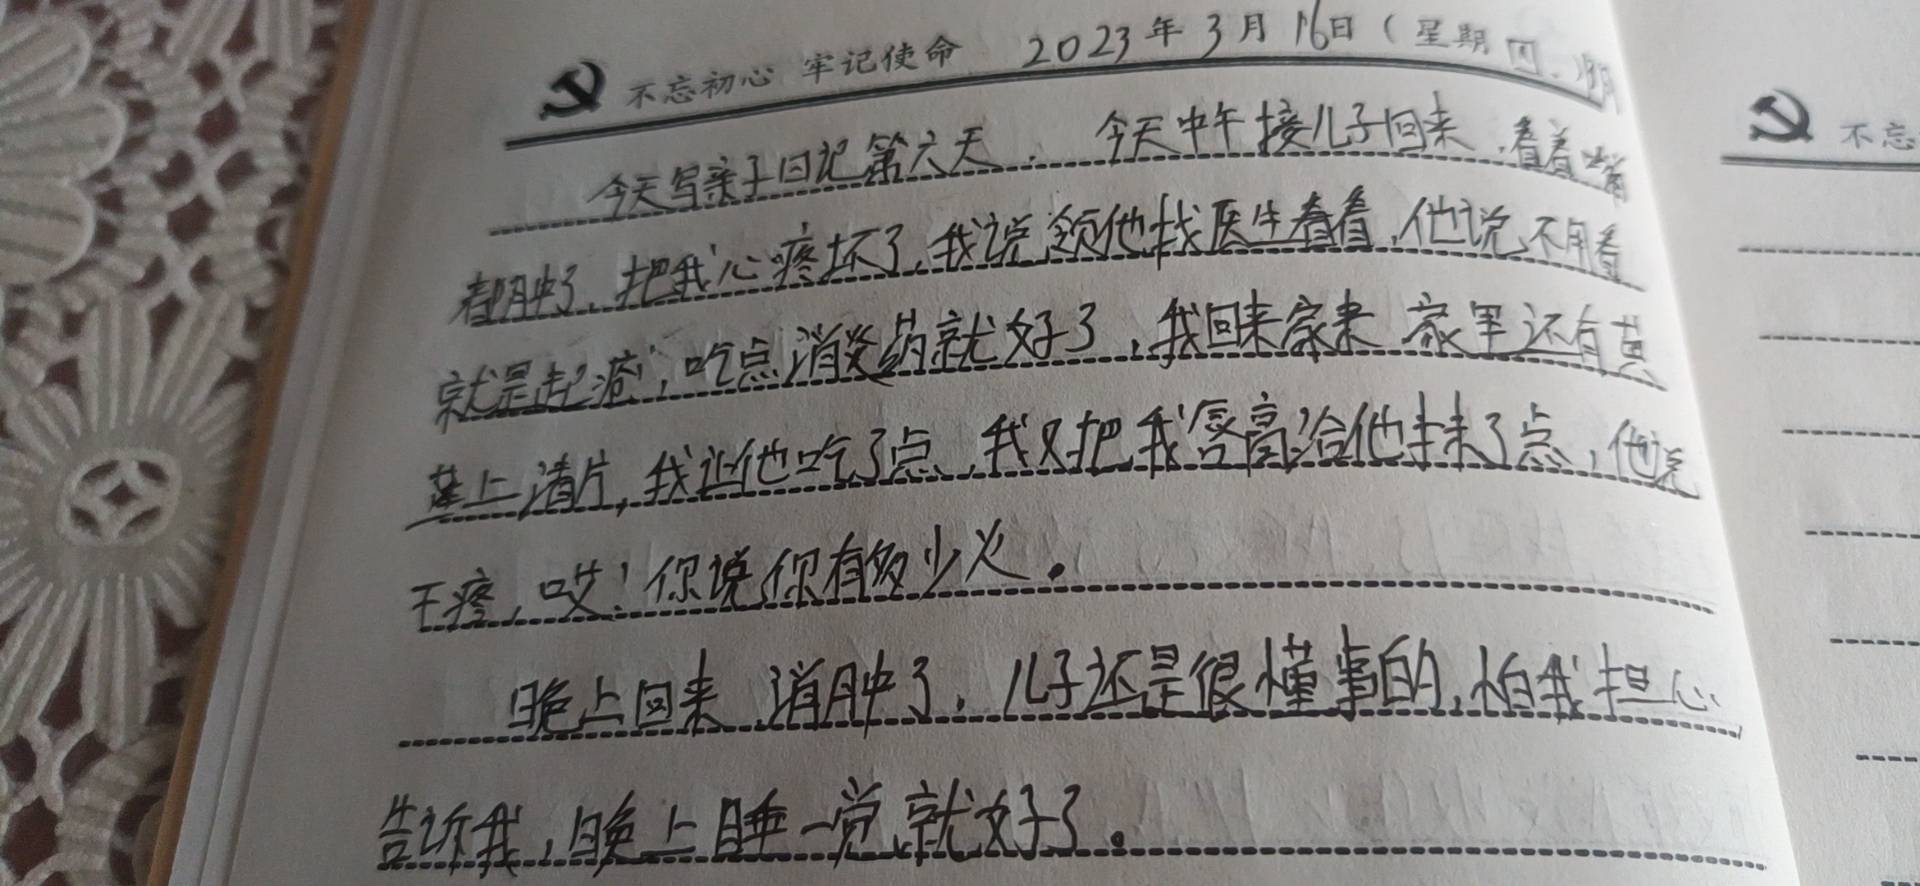 不忘初心 牢记使命 2023年3月16日(星期四.阴
今天写亲子日记第六天, 今天中午接儿子回来,看着嘴
都肿了,把我心疼坏了,我说领他找医生看看,他说不用看
就是起疮,吃点消炎药就好了,我回来家来家里还有黄
莲上清片,我让他吃了点,我又把我唇膏给他抹了点,他说
干疼,哎!你说你有多少火。
晚上回来,消肿了,儿子还是很懂事的,怕我担心
告诉我,晚上睡一觉就好了。
不忘